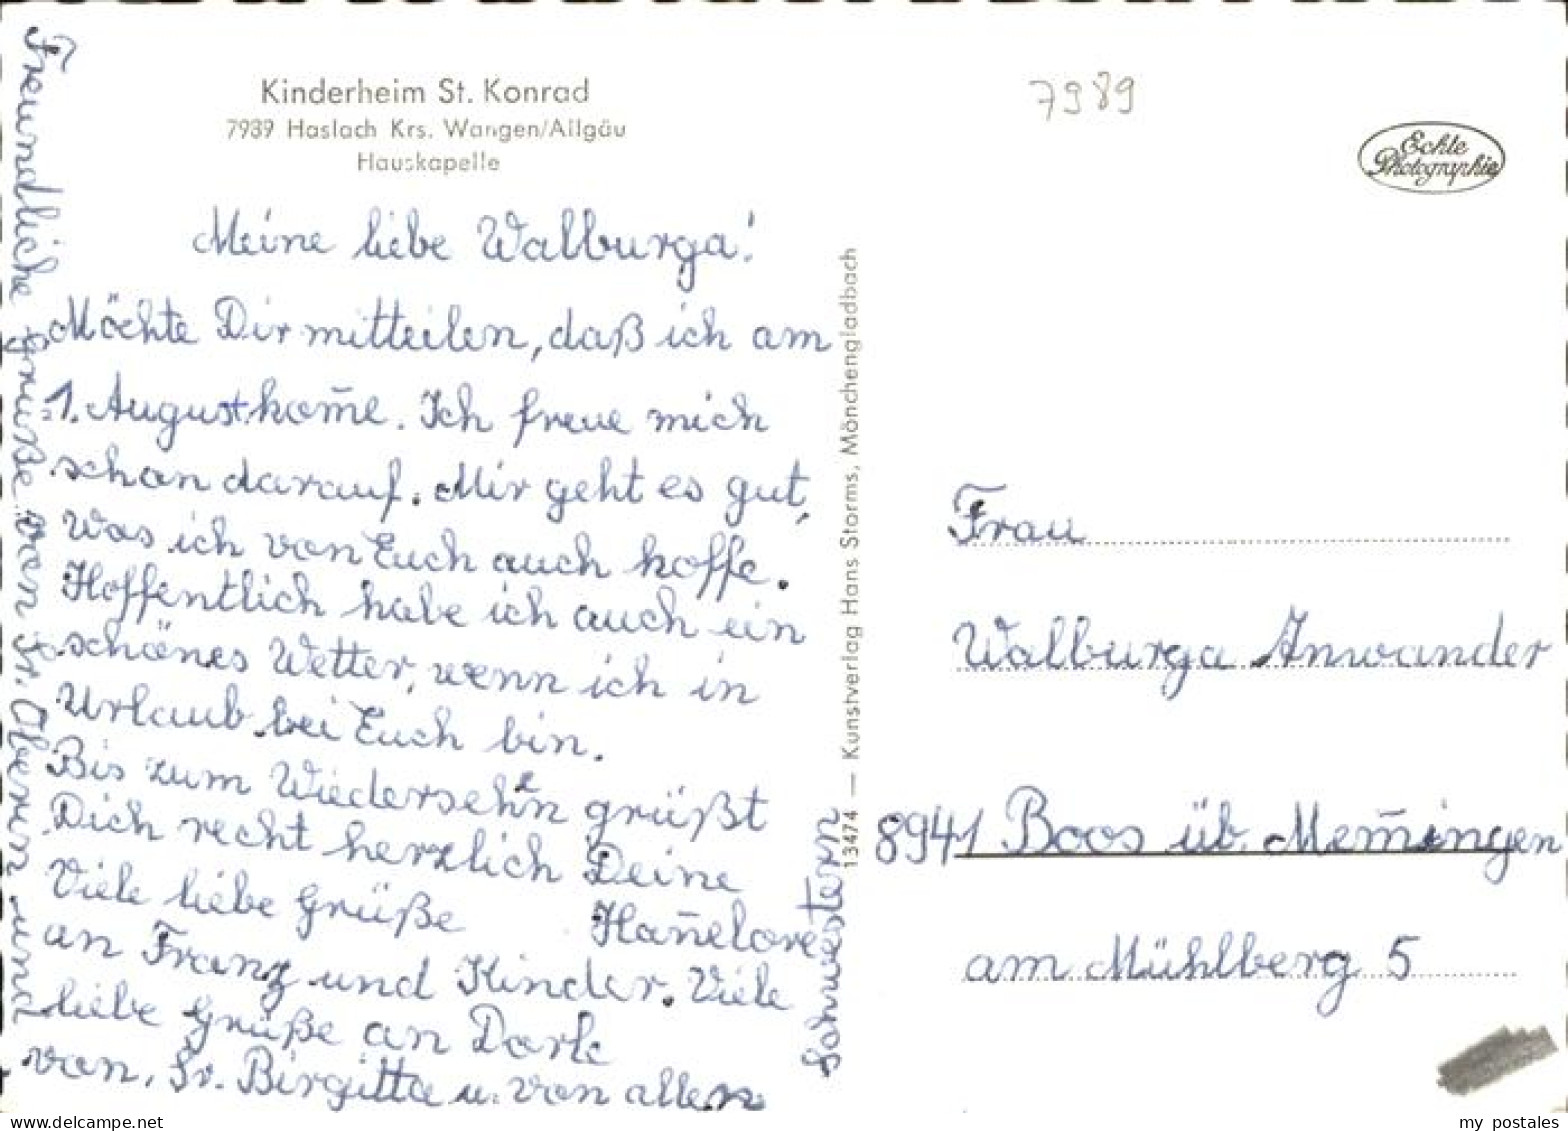 Kinderheim St. Konrad
7989 Haslach Krs. Wangen/Allgäu
Hauskapelle
7989
Echte
Photographie
Meine liebe Walburga!
Möchte Dir mitteilen, daß ich am
1. August kom̄e. Ich freue mich
schon darauf. Mir geht es gut,
was ich von Euch auch hoffe.
Hoffentlich habe ich auch ein
schönes Wetter, wenn ich in
Urlaub bei Euch bin.
Bis zum Wiedersehen grüßt
Dich recht herzlich Deine
Viele liebe Grüße Han̄elore
an Franz und Kinder. Viele
liebe Grüße an Dorle
von Sr. Birgitta u. von allen
Schwestern
Freundliche Grüße von Sr. Oberin und
13474 — Kunstverlag Hans Storms, Mönchengladbach
Frau
Walburga Anwander
8941 Boos üb. Mem̄ingen
am Mühlberg 5
www.mypostcard.info
my postales